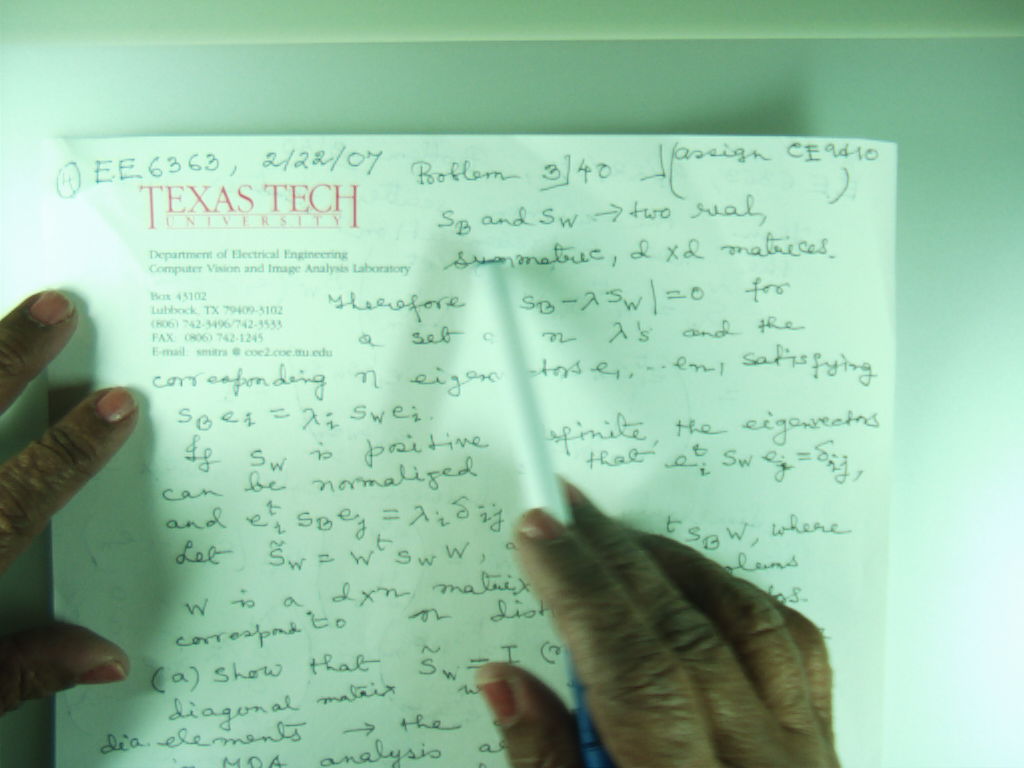 (H) EE6363, 2/22/07 Problem 3/40 (assign CE9&10)
TEXAS TECH
UNIVERSITY
S_B and S_W → two real,
symmetric, d x d matrices.
Department of Electrical Engineering
Computer Vision and Image Analysis Laboratory
Box 43102
Lubbock, TX 79409-3102
(806) 742-3496/742-3533
FAX: (806) 742-1245
E-mail: smitra @ coe2.coe.ttu.edu
Therefore S_B - λ S_W| = 0 for
a set n λ's and the
corresponding n e_1, ... e_n, satisfying
S_B e_i = λ_i S_W e_i.
If S_W is positive the eigenvectors
can be normalized that e_i^t S_W e_j = δ_ij,
and e_i^t S_B e_j = λ_i δ_ij
Let S̃_W = W^t S_W W, ^t S_B W, where
W is a d x n matrix
correspond to n
(a) Show that S̃_W = I
diagonal matrix
dia. elements → the
MDA analysis